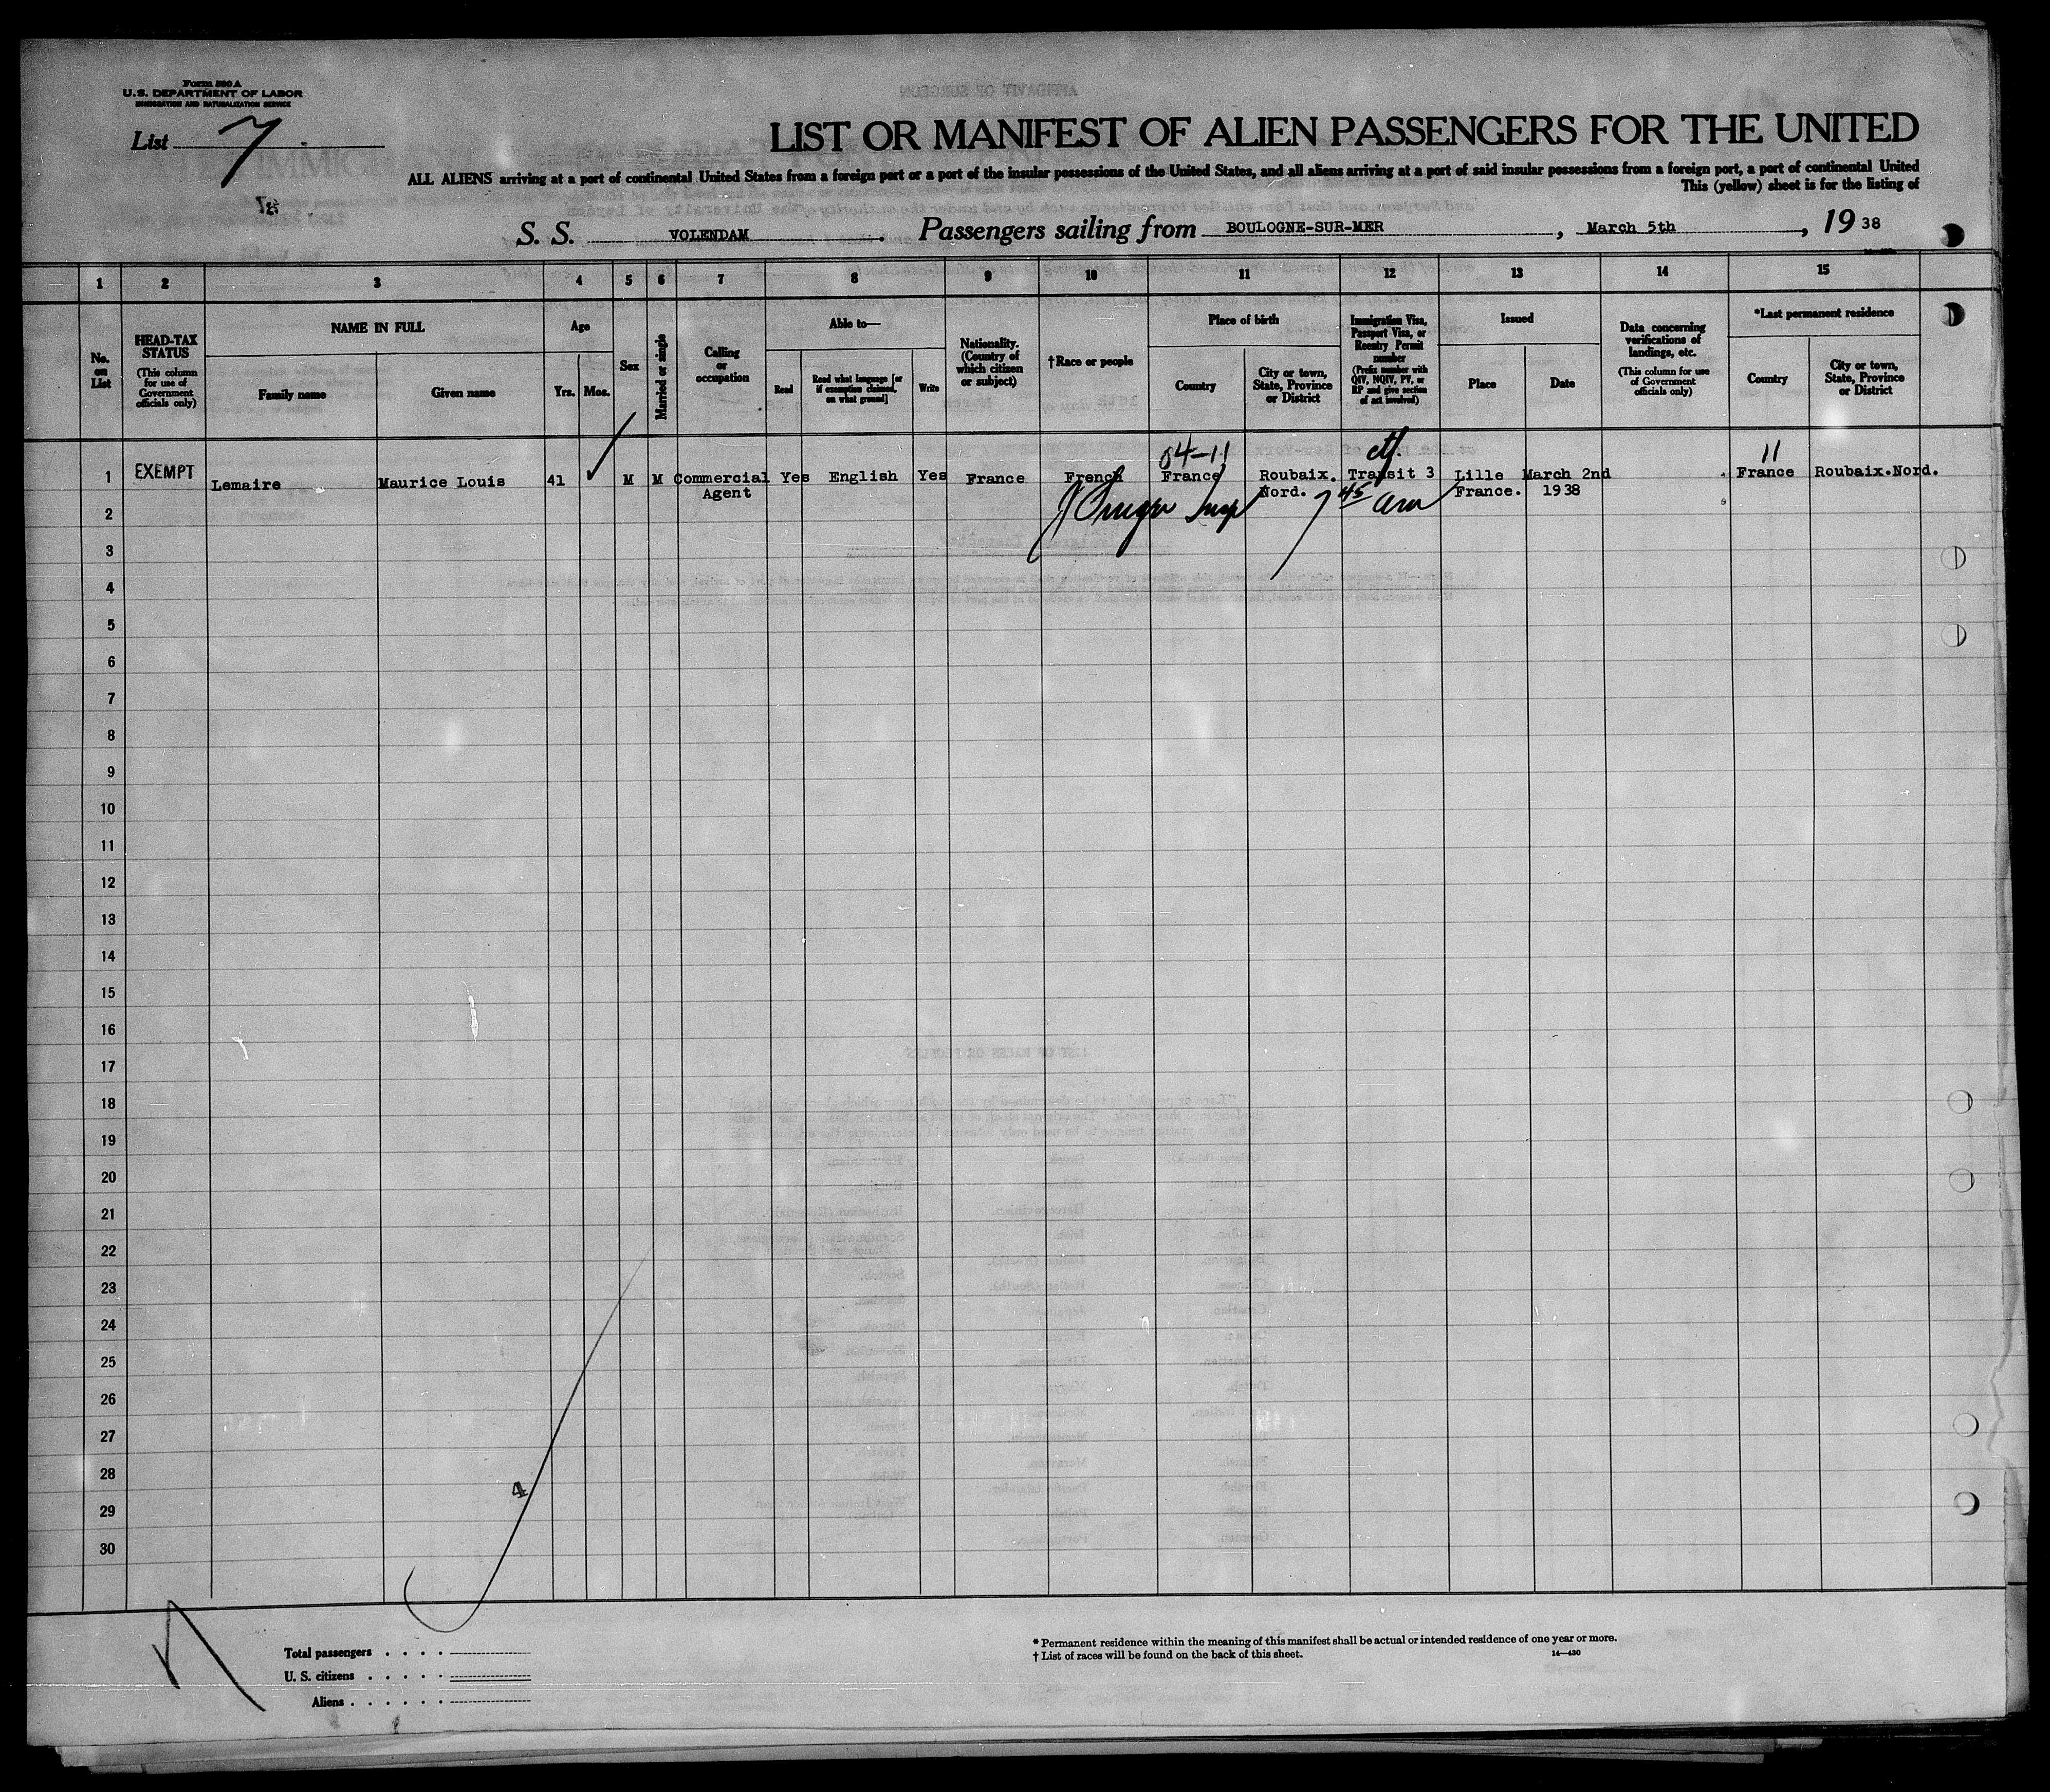 Form 590 A
U. S. DEPARTMENT OF LABOR
IMMIGRATION AND NATURALIZATION SERVICE
List 7
LIST OR MANIFEST OF ALIEN PASSENGERS FOR THE UNITED
ALL ALIENS arriving at a port of continental United States from a foreign port or a port of the insular possessions of the United States, and all aliens arriving at a port of said insular possessions from a foreign port, a port of continental United
This (yellow) sheet is for the listing of
S. S. VOLENDAM. Passengers sailing from BOULOGNE-SUR-MER, March 5th, 19 38
1 2 3 4 5 6 7 8 9 10 11 12 13 14 15
No. on List
HEAD-TAX STATUS
(This column for use of Government officials only)
NAME IN FULL
Family name
Given name
Age
Yrs.
Mos.
Sex
Married or single
Calling or occupation
Able to—
Read
Read what language [or if exemption claimed, on what ground]
Write
Nationality. (Country of which citizen or subject)
†Race or people
Place of birth
Country
City or town, State, Province or District
Immigration Visa, Passport Visa, or Reentry Permit number
(Prefix number with QIV, NQIV, PV, or RP and give section of act involved)
Issued
Place
Date
Data concerning verifications of landings, etc.
(This column for use of Government officials only)
*Last permanent residence
Country
City or town, State, Province or District
04-11
11
1 EXEMPT Lemaire Maurice Louis 41 M M Commercial Yes English Yes France French France Roubaix. Transit 3 Lille March 2nd France Roubaix.Nord.
Agent Nord. France. 1938
7 45 am
2
3
4
5
6
7
8
9
10
11
12
13
14
15
16
17
18
19
20
21
22
23
24
25
26
27
28
4
29
30
Total passengers . . . .
U. S. citizens . . . . .
Aliens . . . . . .
* Permanent residence within the meaning of this manifest shall be actual or intended residence of one year or more.
† List of races will be found on the back of this sheet.
14—430